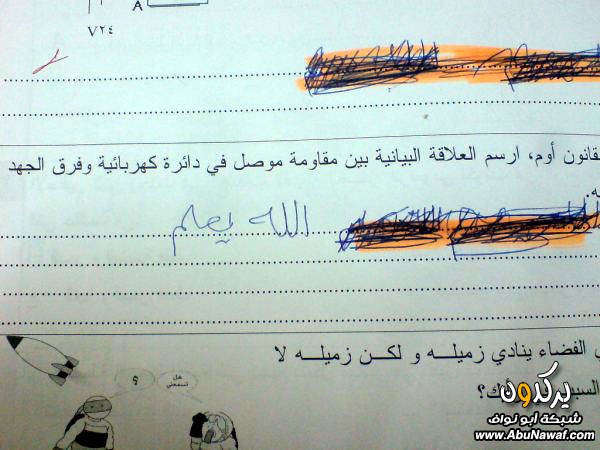 A
٧٢٤
قانون أوم، ارسم العلاقة البيانية بين مقاومة موصل في دائرة كهربائية وفرق الجهد
الله يعلم
الفضاء ينادي زميله و لكن زميله لا
هل تسمعني
؟
يركدون
شبكة أبو نواف
www.AbuNawaf.com